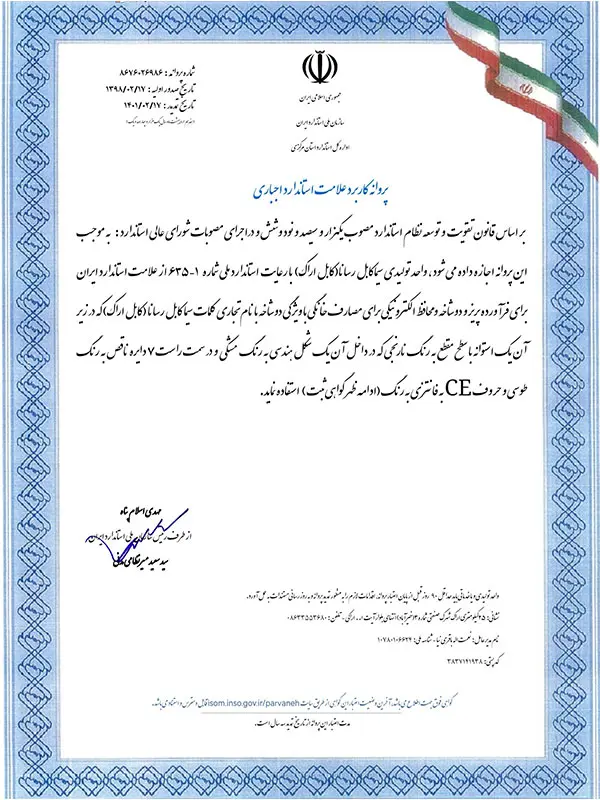 شماره پروانه : ۸۶۷۶۰۲۶۹۸۶
تاریخ صدور اولیه : ۱۳۹۸/۰۲/۱۷
تاریخ تمدید : ۱۴۰۱/۰۲/۱۷
جمهوری اسلامی ایران
سازمان ملی استاندارد ایران
اداره کل استاندارد استان مرکزی
پروانه کاربرد علامت استاندارد اجباری
بر اساس قانون تقویت و توسعه نظام استاندارد مصوب یکهزار و سیصد و نود و شش و در اجرای مصوبات شورای عالی استاندارد: به موجب
این پروانه اجازه داده می شود ، واحد تولیدی سیماکابل رسانا(کابل اراک) با رعایت استاندارد ملی شماره ۱-۶۳۵ از علامت استاندارد ایران
برای فرآورده پریز و دوشاخه و محافظ الکترونیکی برای مصارف خانگی با ویژگی دوشاخه با نام تجاری کلمات سیماکابل رسانا(کابل اراک)که در زیر
آن یک استوانه با سطح مقطع به رنگ نارنجی که در داخل آن یک شکل هندسی به رنگ مشکی و در سمت راست ۷ دایره ناقص به رنگ
طوسی و حروف CE به فانتزی به رنگ (ادامه ظهر گواهی ثبت) استفاده نماید.
مهدی اسلام پناه
از طرف رئیس سازمان ملی استاندارد ایران
سید سعید میرنظامی
واحد تولیدی و یا خدماتی باید حداقل ۹۰ روز قبل از پایان اعتبار پروانه، اقدامات لازم را به منظور تمدید پروانه و به روز رسانی مستندات به عمل آورد.
نشانی: ۲۵ کیلومتری اراک شهرک صنعتی شماره ۳(خیرآباد) انتهای بلوار آیت اله اراکی ، تلفن: ۰۸۶۳۳۵۵۳۶۸۰
نام مدیرعامل: نعمت اله باقری نیا ، شناسه ملی: ۱۰۷۸۰۱۰۶۶۲۴
کد پستی: ۳۸۳۷۱۴۱۹۳۸
گواهی فوق جهت اطلاع می باشد. آخرین وضعیت اعتبار این گواهی از طریق سایت isom.inso.gov.ir/parvaneh قابل دسترس و استناد می باشد.
مدت اعتبار این پروانه از تاریخ تمدید سه سال است.